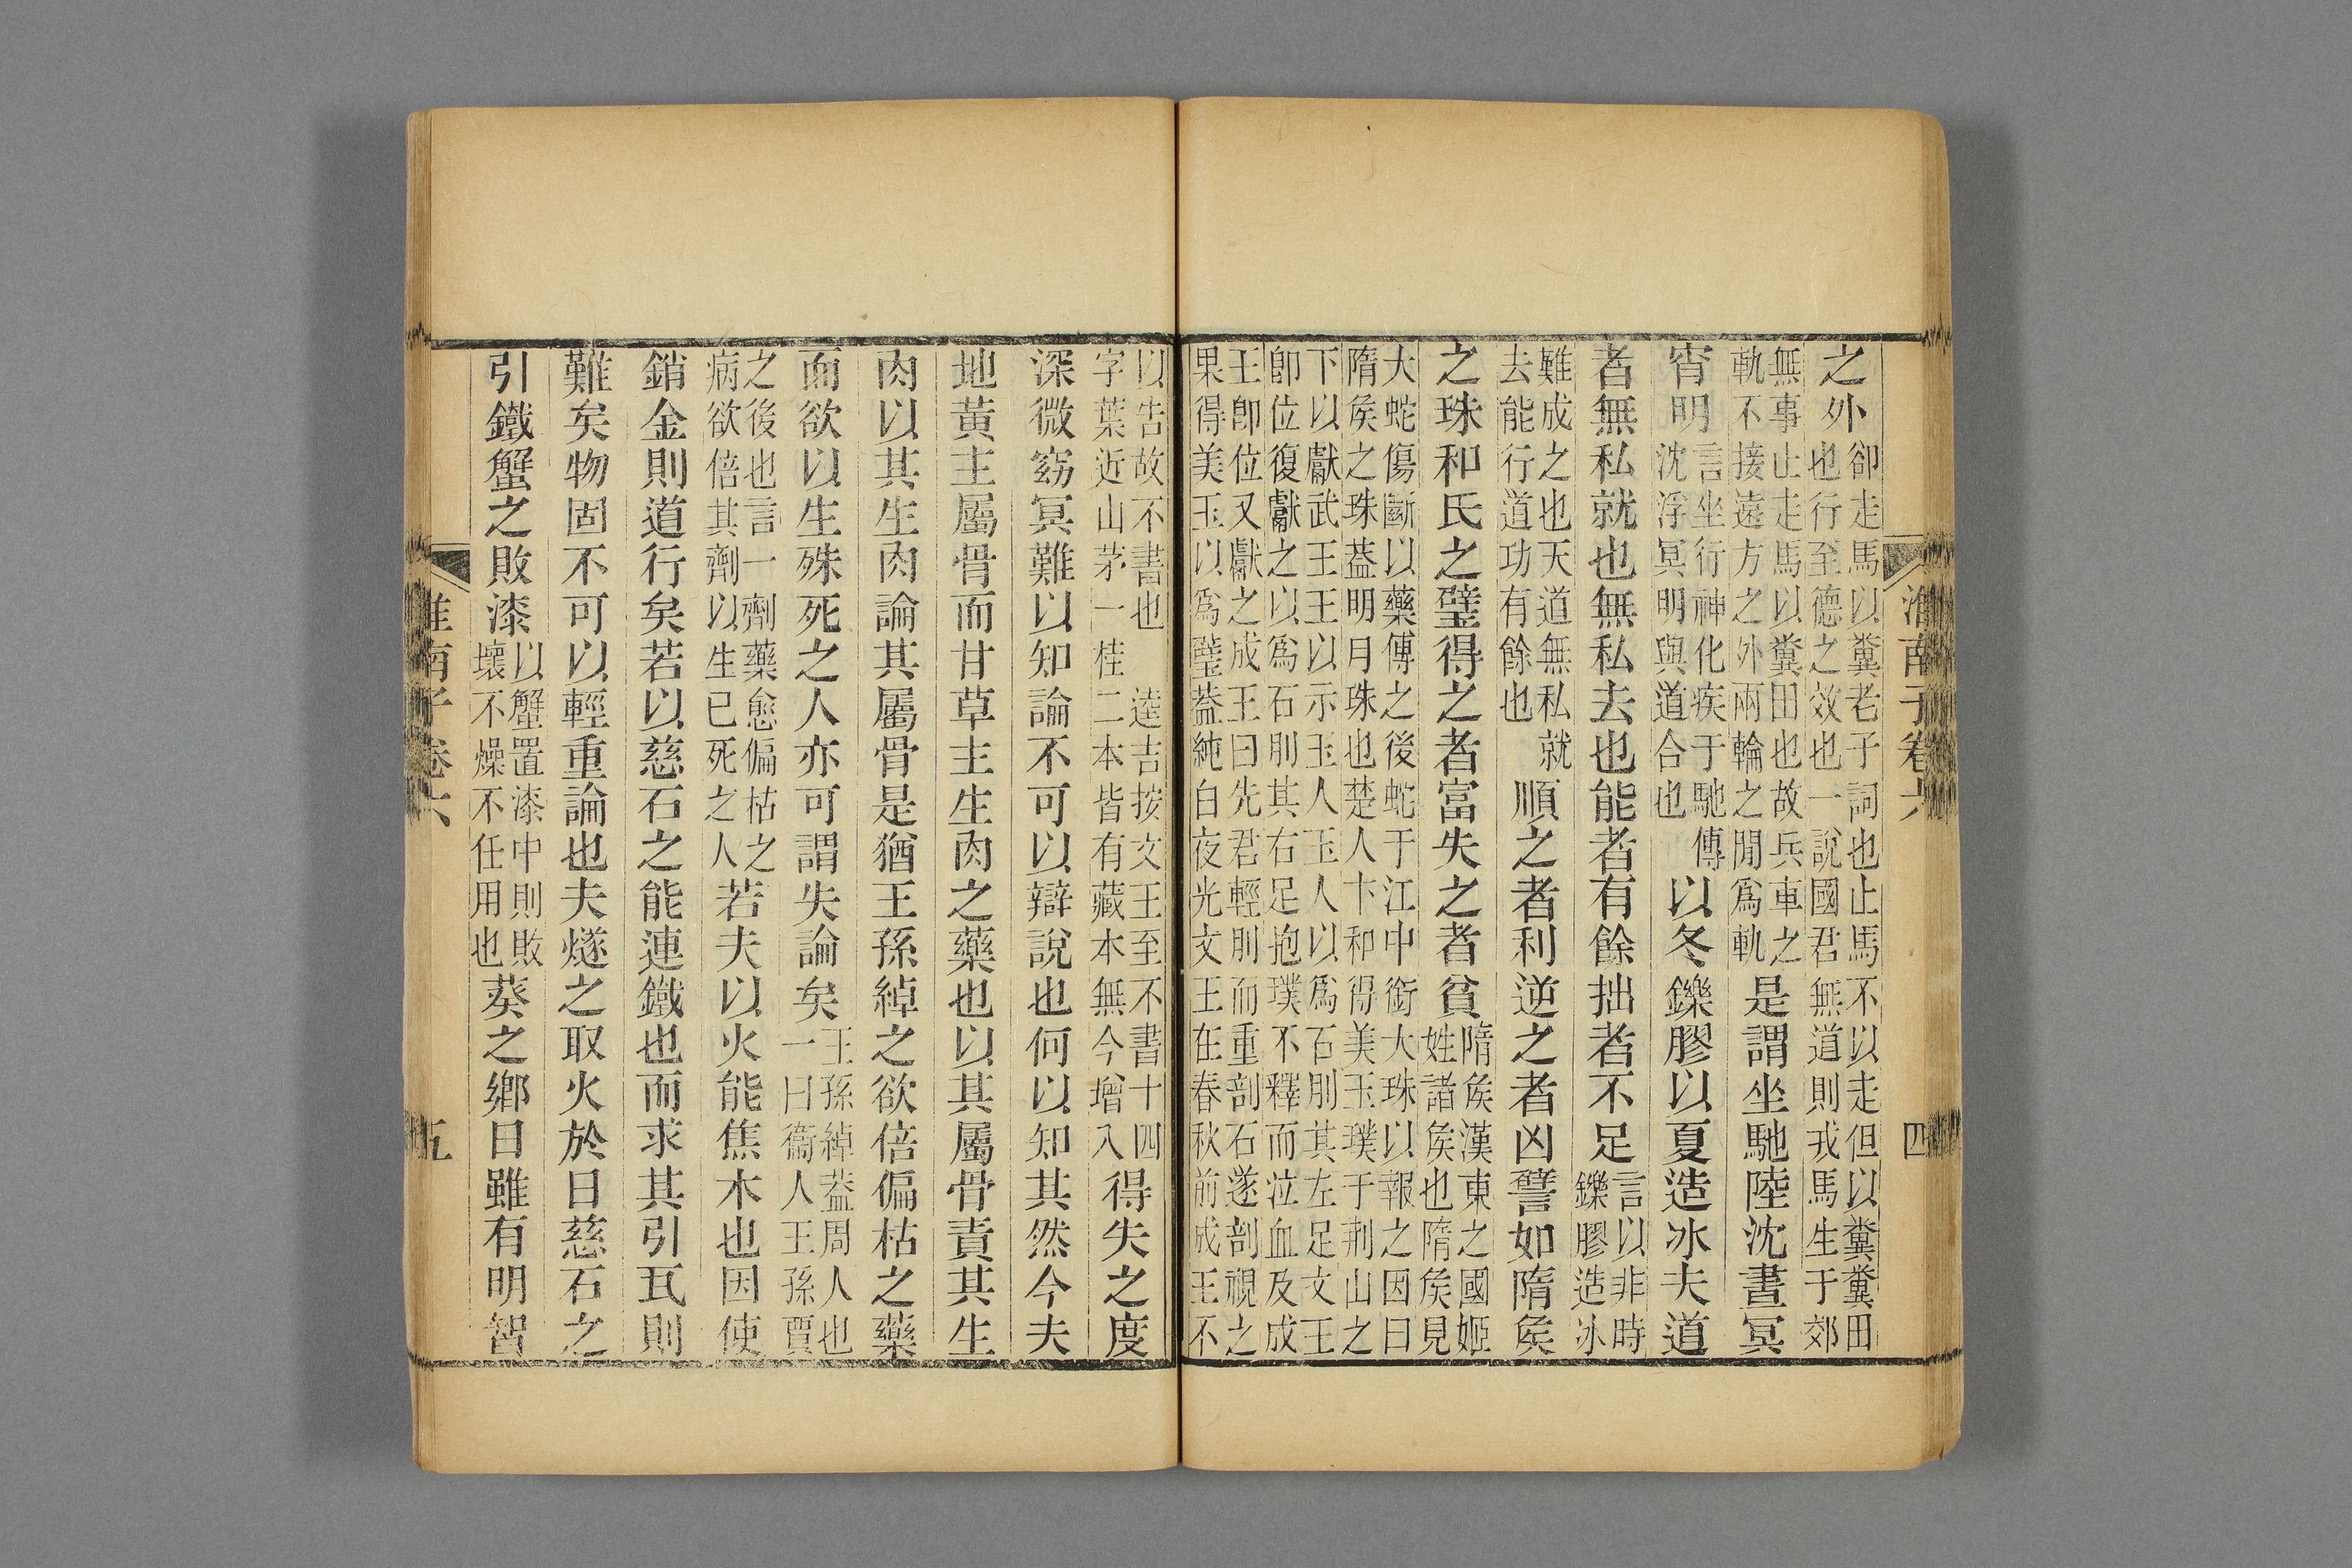 淮南子卷六
四
之外卻走馬以糞老子詞也止馬不以走但以糞糞田
也行至德之效也一說國君無道則戎馬生于郊
無事止走馬以糞田也故兵車之
軌不接遠方之外兩輪之閒爲軌是謂坐馳陸沈晝冥
宵明言坐行神化疾于馳傳
沈浮冥明與道合也以冬鑠膠以夏造冰夫道
者無私就也無私去也能者有餘拙者不足言以非時
鑠膠造冰
難成之也天道無私就
去能行道功有餘也順之者利逆之者凶譬如隋矦
之珠和氏之璧得之者富失之者貧隋矦漢東之國姬
姓諸矦也隋矦見
大蛇傷斷以藥傅之後蛇于江中銜大珠以報之因曰
隋矦之珠葢明月珠也楚人卞和得美玉璞于荆山之
下以獻武王王以示玉人玉人以爲石刖其左足文王
卽位復獻之以爲石刖其右足抱璞不釋而泣血及成
王卽位又獻之成王曰先君輕刖而重剖石遂剖視之
果得美玉以爲璧葢純白夜光文王在春秋前成王不
以告故不書也 逵吉按文王至不書十四
字葉近山茅一桂二本皆有藏本無今增入得失之度
深微窈冥難以知論不可以辯說也何以知其然今夫
地黃主屬骨而甘草主生肉之藥也以其屬骨責其生
肉以其生肉論其屬骨是猶王孫綽之欲倍偏枯之藥
而欲以生殊死之人亦可謂失論矣王孫綽葢周人也
一曰衞人王孫賈
之後也言一劑藥愈偏枯之
病欲倍其劑以生已死之人若夫以火能焦木也因使
銷金則道行矣若以慈石之能連鐵也而求其引瓦則
難矣物固不可以輕重論也夫燧之取火於日慈石之
引鐵蟹之敗漆以蟹置漆中則敗
壞不燥不任用也葵之鄉日雖有明智
淮南子卷六
五